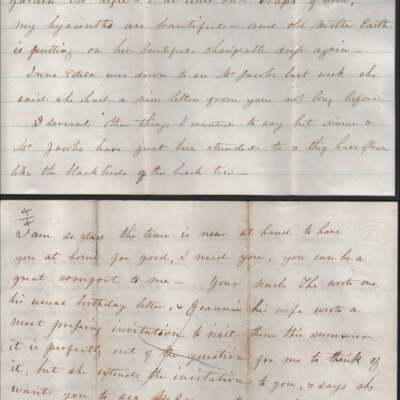 my hyacinths are beautiful - and old Mother Earth
is putting on her beautiful changeable dress again -
was down to see Mr Jacobs last week she
said she had a nice letter from you not long before
I several other things I wanted to say but dinner &
Mr Jacobs have just been attended to & they have flown
like the black birds of the beech tree -
4/4
I am so glad the time is near at hand to have
you at home for good, I need you, you can be a
great comfort to me - Your Uncle Tho wrote me
his usual birthday letter, & Jeannie his wife wrote a
most pressing invitation to visit them this summer
it is perfectly out of the question for me to think of
it, but she extends the invitation to you, & says she
wants you to